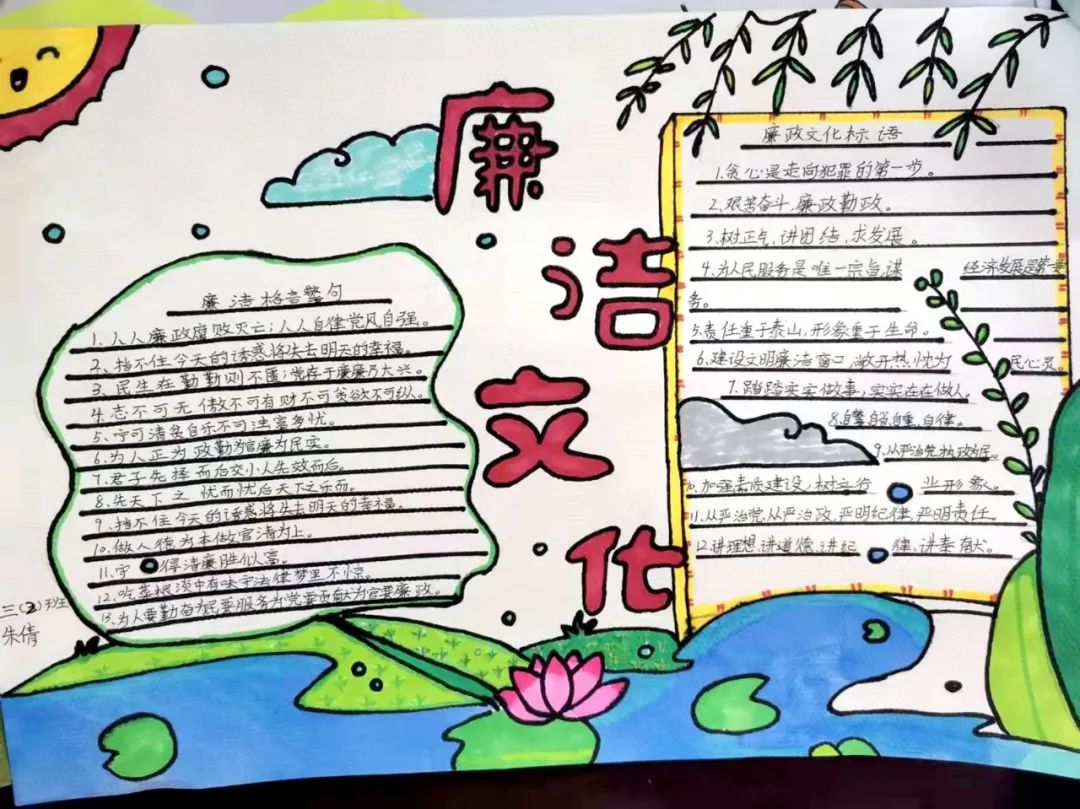 廉洁文化
廉洁格言警句
1、人人廉政腐败灭亡；人人自律党风自强。
2、挡不住今天的诱惑将失去明天的幸福。
3、民生在勤勤则不匮；党存于廉廉乃大兴。
4、志不可无傲不可有财不可贪欲不可纵。
5、宁可清贫自乐不可浊富多忧。
6、为人正为政勤为官廉为民实。
7、君子先择而后交小人先效而后。
8、先天下之忧而忧后天下之乐而。
9、挡不住今天的诱惑将失去明天的幸福。
10、做人德为本做官清为上。
11、守得清廉胜似富。
12、吃菜根淡中有味守法律梦里不惊。
13、为人要勤奋为民要服务为党要贡献为官要廉政。
三（2）班
朱倩
廉政文化标语
1.贪心是走向犯罪的第一步。
2.艰苦奋斗，廉政勤政。
3.树正气，讲团结，求发展。
4.为人民服务是唯一宗旨，谋经济发展是第一要
务。
5.责任重于泰山，形象重于生命。
6.建设文明廉洁窗口，敞开热忱为民心灵。
7.踏踏实实做事，实实在在做人。
8.自警，自醒，自重，自律。
9.从严治党，执政为民。
10.加强素质建设，树立行业形象。
11.从严治党，从严治政，严明纪律，严明责任。
12.讲理想，讲道德，讲纪律，讲奉献。